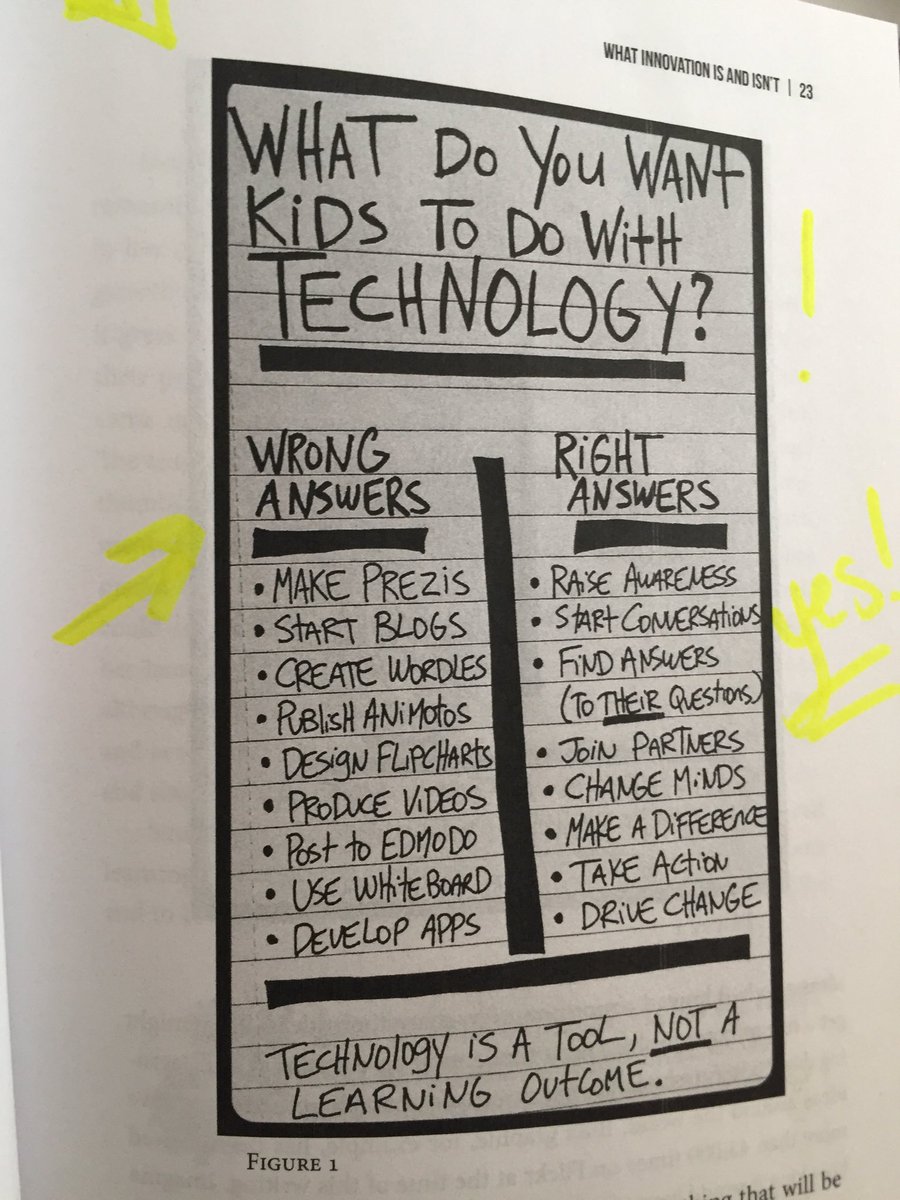 WHAT INNOVATION IS AND ISN'T | 23
WHAT DO YOU WANT
KiDS TO DO WiTH
TECHNOLOGY?
WRONG
ANSWERS
• MAKE PREZiS
• START BLOGS
• CREATE WORDLES
• PUBLiSH ANiMOTOS
• DESiGN FLiPCHARTS
• PRODUCE ViDEOS
• POST to EDMODO
• USE WHiTEBOARD
• DEVELOP APPS
RiGHT
ANSWERS
• RAiSE AWARENESS
• START CONVERSATiONS
• FiND ANSWERS
(TO THEiR QUESTiONS)
• JOiN PARTNERS
• CHANGE MiNDS
• MAKE A DiFFERENCE
• TAKE ACTiON
• DRiVE CHANGE
TECHNOLOGY iS A TOOL, NOT A
LEARNiNG OUTCOME.
!
yes!
FIGURE 1
that will be